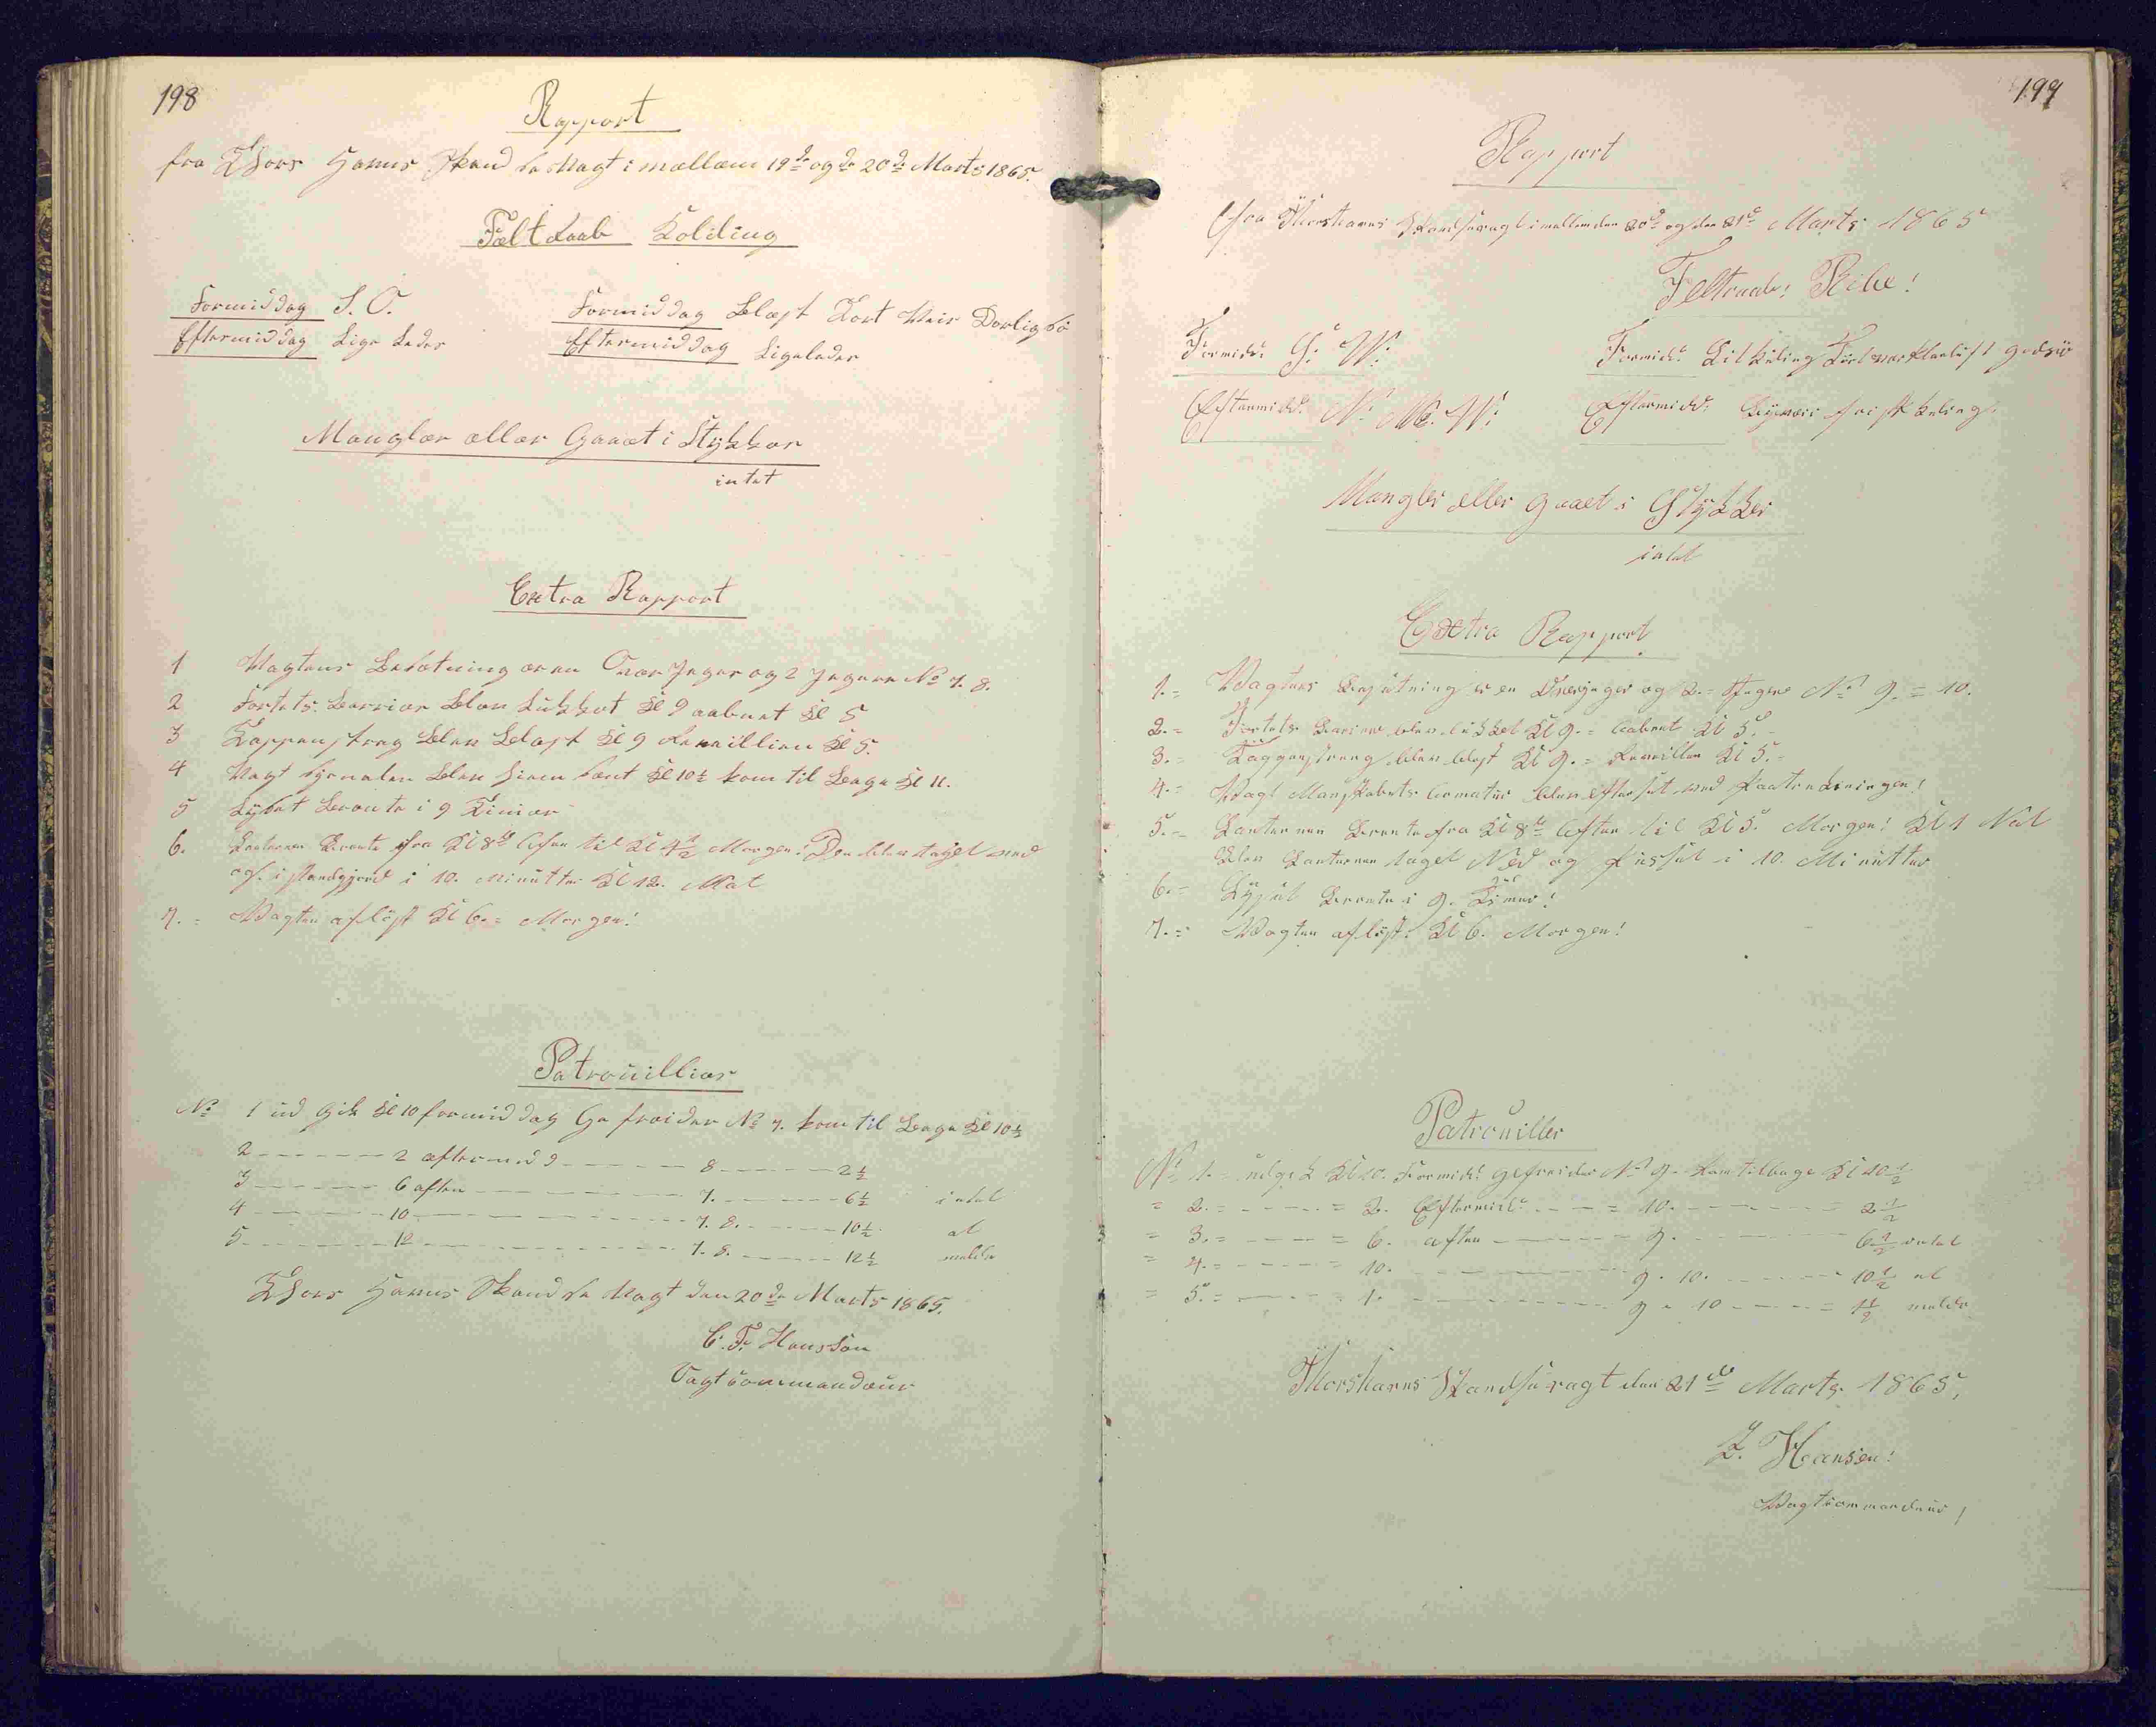 198
Rapport
fra Thors Havns Skandse Vagt i mællæm 19de og de 20de Marts 1865.
Fælt Raab Kolding
Formiddag S. O.
Eftermiddag Lige Ledes
Formiddag Blæst Tort Veir Dorlig Sö
Eftermiddag Ligeledes
Manglær ællær Gaaæt i Stykkær
intet
Extra Rapport
1 Vagtens Besætning ær en Over Jæger og 2 Jægere No 7. 8.
2 Fortets Barriær blev Lukket Kl 9 aabnet Kl 5
3 Tappenstreg blev blæst Kl 9 Reveillien Kl 5.
4 Vagt Sjonalen blev Hiem sænt Kl 10½ kom til Bage Kl 11.
5 Lyset brænte i 9 Timer
6. Lanternen Brænte fra Kl 8te Aften til Kl 4½ Morgen! Den blev taget ned
og i standgjord i 10. Minutter Kl 12. Nat
7. = Vagten aflöst Kl 6. = Morgen!
Patrouillier
No 1 ud Gik Kl 10 formiddag Gefreider No 7. kom til Bage Kl 10½
2 - - - - - - - 2 æftermid 9 - - - - - 8 - - - - - - 2½
3 - - - - - - 6 aften - - - - - - - - - 7. - - - - - - 6½ intet
4 - - - - - - - 10 - - - - - - - - - - - 7. 8. - - - - - 10½ at
5. - - - - - - - 12 - - - - - - - - - - - 7. 8. - - - - - 12½ melde
Thors Havns Skandse Vagt den 20de Marts 1865.
C. F. Hanssön
Vagtcommandeur
199
Rapport
fra Thorshavns Skandsevagt imellem den 20de og den 21de Marts 1865
Feltraab: Ribe!
Formidd: S: W:
Eftermidd: N: W:
Formidd: Lit Kuling Tört godsö
Eftermidd: frisk Kuling
Mangler eller gaaet i Stykker
intet
Extra Rapport
1. = Vagtens Besætning er en Overjæger og 2. = Jægere No 9. = 10.
2. = Fortets Bariere blev lukket Kl 9. = aabnet Kl 5. -
3. = Tappenstreng blev blæst Kl 9. = Reveillen Kl 5. -
4. = Vagt Manskabets Armatur blev efterset ved Paatrædningen!
5. = Lanternen Brænte fra Kl 8te Aften til Kl 5. Morgen! Kl 1 Nat
blev Lanternen taget Ned og pusset i 10. Minutter
6. = Lyset Brænte i 9. Timer!
7. = Vagten aflöst. Kl 6. Morgen!
Patrouiller
No 1. = udgik Kl 10. Formidd: gefreider No 9. kom tilbage Kl 10½
= 2. = - - - - = 2. Eftermidd: - - - = 10. - - - - - - = 2½
= 3. = - - - - = 6. aften - - - - - - 9. - - - - - - - 6½ intet
= 4. = - - - - = 10. - - - - - - - - - 9. 10. - - - - - - 10½ at
= 5. = - - - - = 1. - - - - - - - - - 9 = 10 - - - - = 1½ melde
Thorshavns Skandsevagt den 21de Marts 1865,
Z. Hansen!
Vagtcommandeur